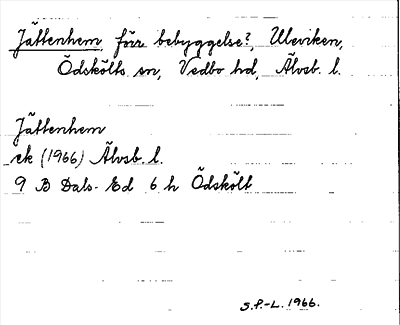 Jättenhem, förr bebyggelse?, Uleviken,
Ödskölts sn, Vedbo hd, Älvsb. l.
Jättenhem
ek (1966) Älvsb. l.
9 B Dals-Ed 6 h Ödskölt
S.P.-L. 1966.